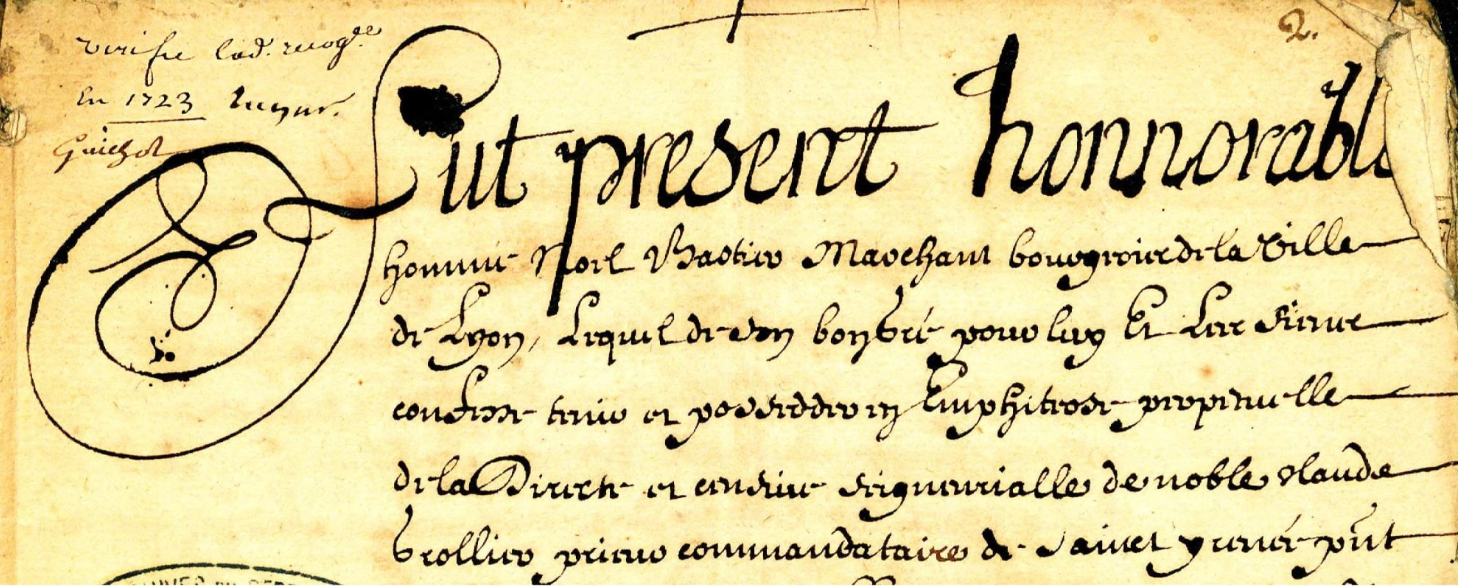 2.
verifie lad. recog.lle
En 1723
Guichot
Fut present honnorable
homme Noel Bastier Marchant bourgeois de la ville
de Lyon, Lequel de son bon gré pour luy Et Les siens
confesse tenir et possedder en Emphiteose perpetuelle
de la Directe et censive seigneurialle de noble Claude
Grollier prieur commandataire de Sainct yrenée pnt